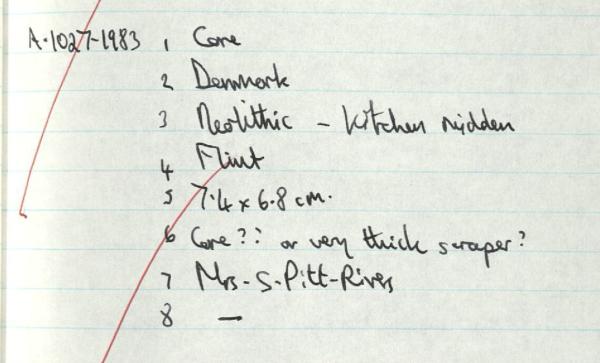 A.1027-1983 1 Core
2 Denmark
3 Neolithic - kitchen midden
4 Flint
5 7.4 x 6.8 cm.
6 Core?? or very thick scraper?
7 Mrs - S. Pitt-Rivers
8 —